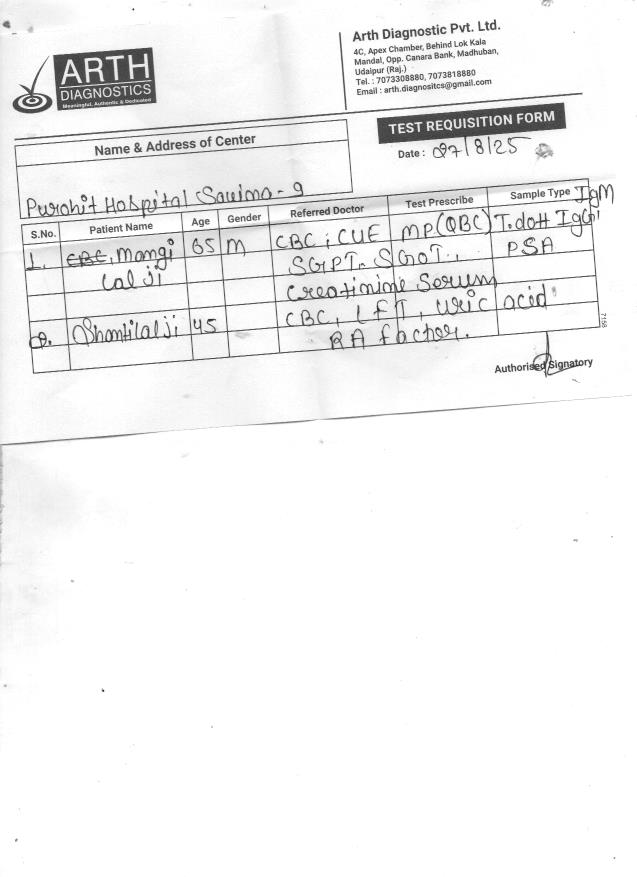 ARTH
DIAGNOSTICS
Meaningful, Authentic & Dedicated
Arth Diagnostic Pvt. Ltd.
4C, Apex Chamber, Behind Lok Kala
Mandal, Opp. Canara Bank, Madhuban,
Udaipur (Raj.)
Tel. : 7073308880, 7073818880
Email : arth.diagnositcs@gmail.com
TEST REQUISITION FORM
Name & Address of Center
Date : 27/8/25
Purohit Hospital - 9
S.No. Patient Name Age Gender Referred Doctor Test Prescribe Sample Type
1. CBC, Mangi 65 M CBC, CUE MP(QBC) T.dot IgG, IgM
lal ji SGPT. SGOT., PSA
Creatinine Serum
2. Shantilal ji 45 CBC, LFT, uric acid
RA factor.
7158
Authorised Signatory